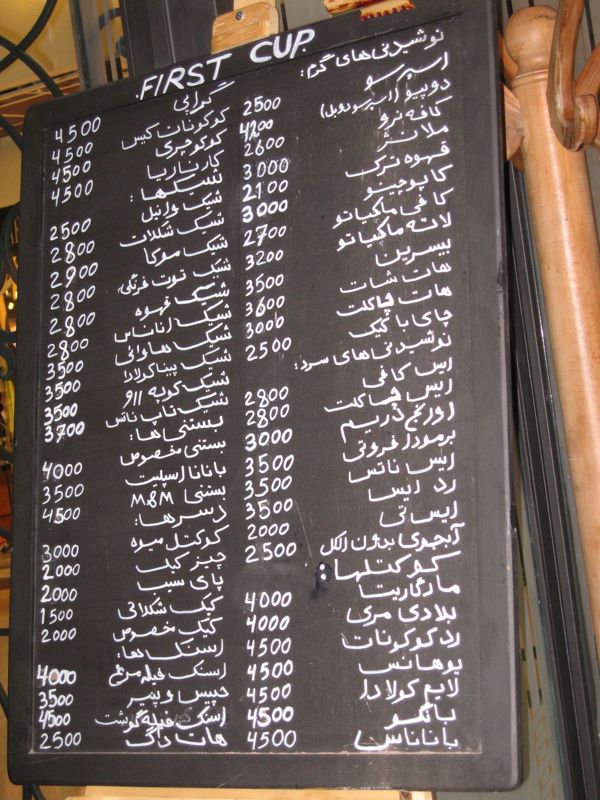 FIRST CUP
نوشیدنی‌های گرم:
اسپرسو 2500
دوپیو (اسپرسو دوبل) 4200
کافه ترو 2600
ملانژ 3000
قهوه ترک 2100
کاپوچینو 3000
کافی ماکیاتو 2700
لاته ماکیاتو 3200
بیسرین 3500
هات شات 3600
هات چاکلت 3000
چای با کیک 2500
نوشیدنی‌های سرد:
ایس کافی 2800
ایس چاکلت 2800
اورنج دریم 3000
برمودا فروتی 3500
ایس ناتس 3500
رد ایسا 3500
ایس تی 2000
آبجوی بدون الکل 2500
کوکتلها:
مارگاریتا 4000
بلادی مری 4000
رد کوکونات 4500
یوهانس 4500
لایم کولادا 4500
بانگو 4500
باناناس 4500
گراپی 4500
کوکونات کیس 4500
کوکوچری 4500
کارناریا 4500
شیکها:
شیک وانیل 2500
شیک شکلات 2800
شیک موکا 2900
شیک توت فرنگی 2800
شیک قهوه 2800
شیک آناناس 2800
شیک هاوائی 3500
شیک پیناکولادا 3500
شیک کوبه ااو 3500
شیک تاپ ناتس 3700
بستنی ها:
بستنی مخصوص 4000
بانانا اسپلیت 3500
بستنی M&M 4500
دسرها:
کوکتل میوه 3000
چیز کیک 2000
پای سیب 2000
کیک شکلاتی 1500
کیک مخصوص 2000
اسنک ها:
اسنک فیله مرغ 4000
چیپس و پنیر 3500
اسنک فیله گوشت 4500
هات داگ 2500